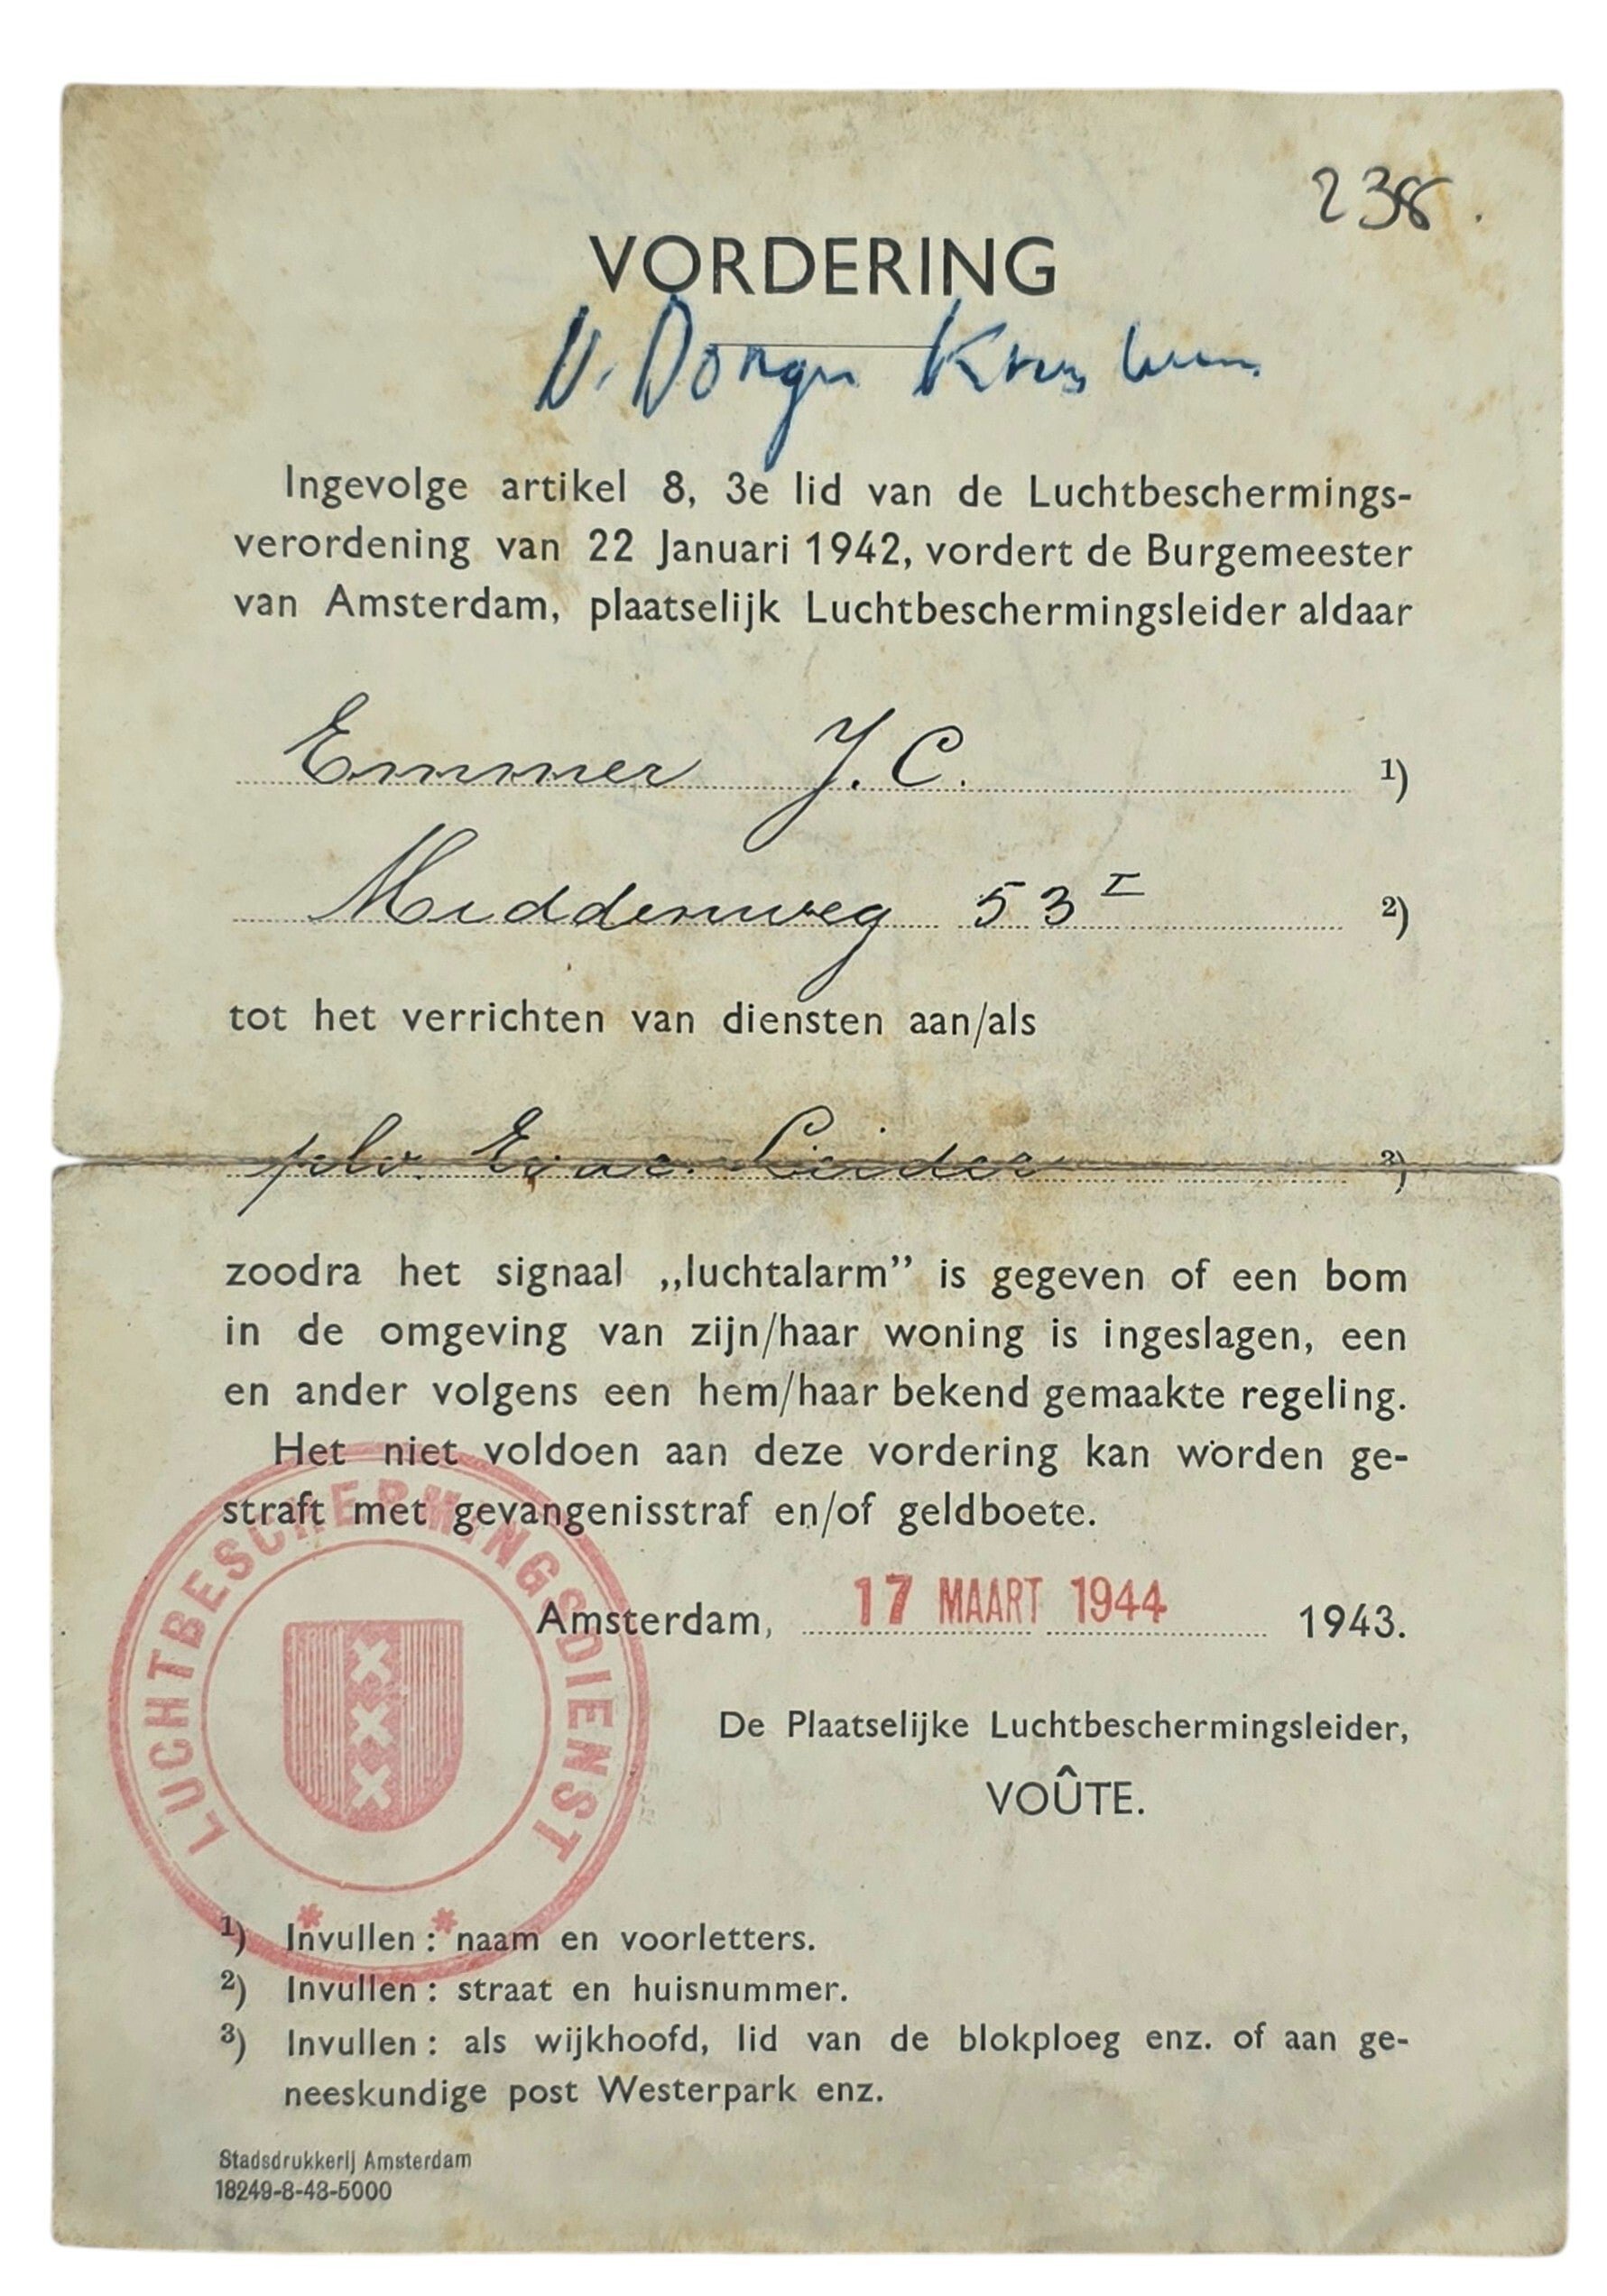 238.
VORDERING
Ingevolge artikel 8, 3e lid van de Luchtbeschermings-
verordening van 22 Januari 1942, vordert de Burgemeester
van Amsterdam, plaatselijk Luchtbeschermingsleider aldaar
Emmer J. C. 1)
Middenweg 53 I 2)
tot het verrichten van diensten aan/als
plv. Evac. Leider 3)
zoodra het signaal „luchtalarm” is gegeven of een bom
in de omgeving van zijn/haar woning is ingeslagen, een
en ander volgens een hem/haar bekend gemaakte regeling.
Het niet voldoen aan deze vordering kan worden ge-
straft met gevangenisstraf en/of geldboete.
LUCHTBESCHERMINGSDIENST
Amsterdam, 17 MAART 1944 1943.
De Plaatselijke Luchtbeschermingsleider,
VOÛTE.
1) Invullen: naam en voorletters.
2) Invullen: straat en huisnummer.
3) Invullen: als wijkhoofd, lid van de blokploeg enz. of aan ge-
neeskundige post Westerpark enz.
Stadsdrukkerij Amsterdam
18249-8-43-5000